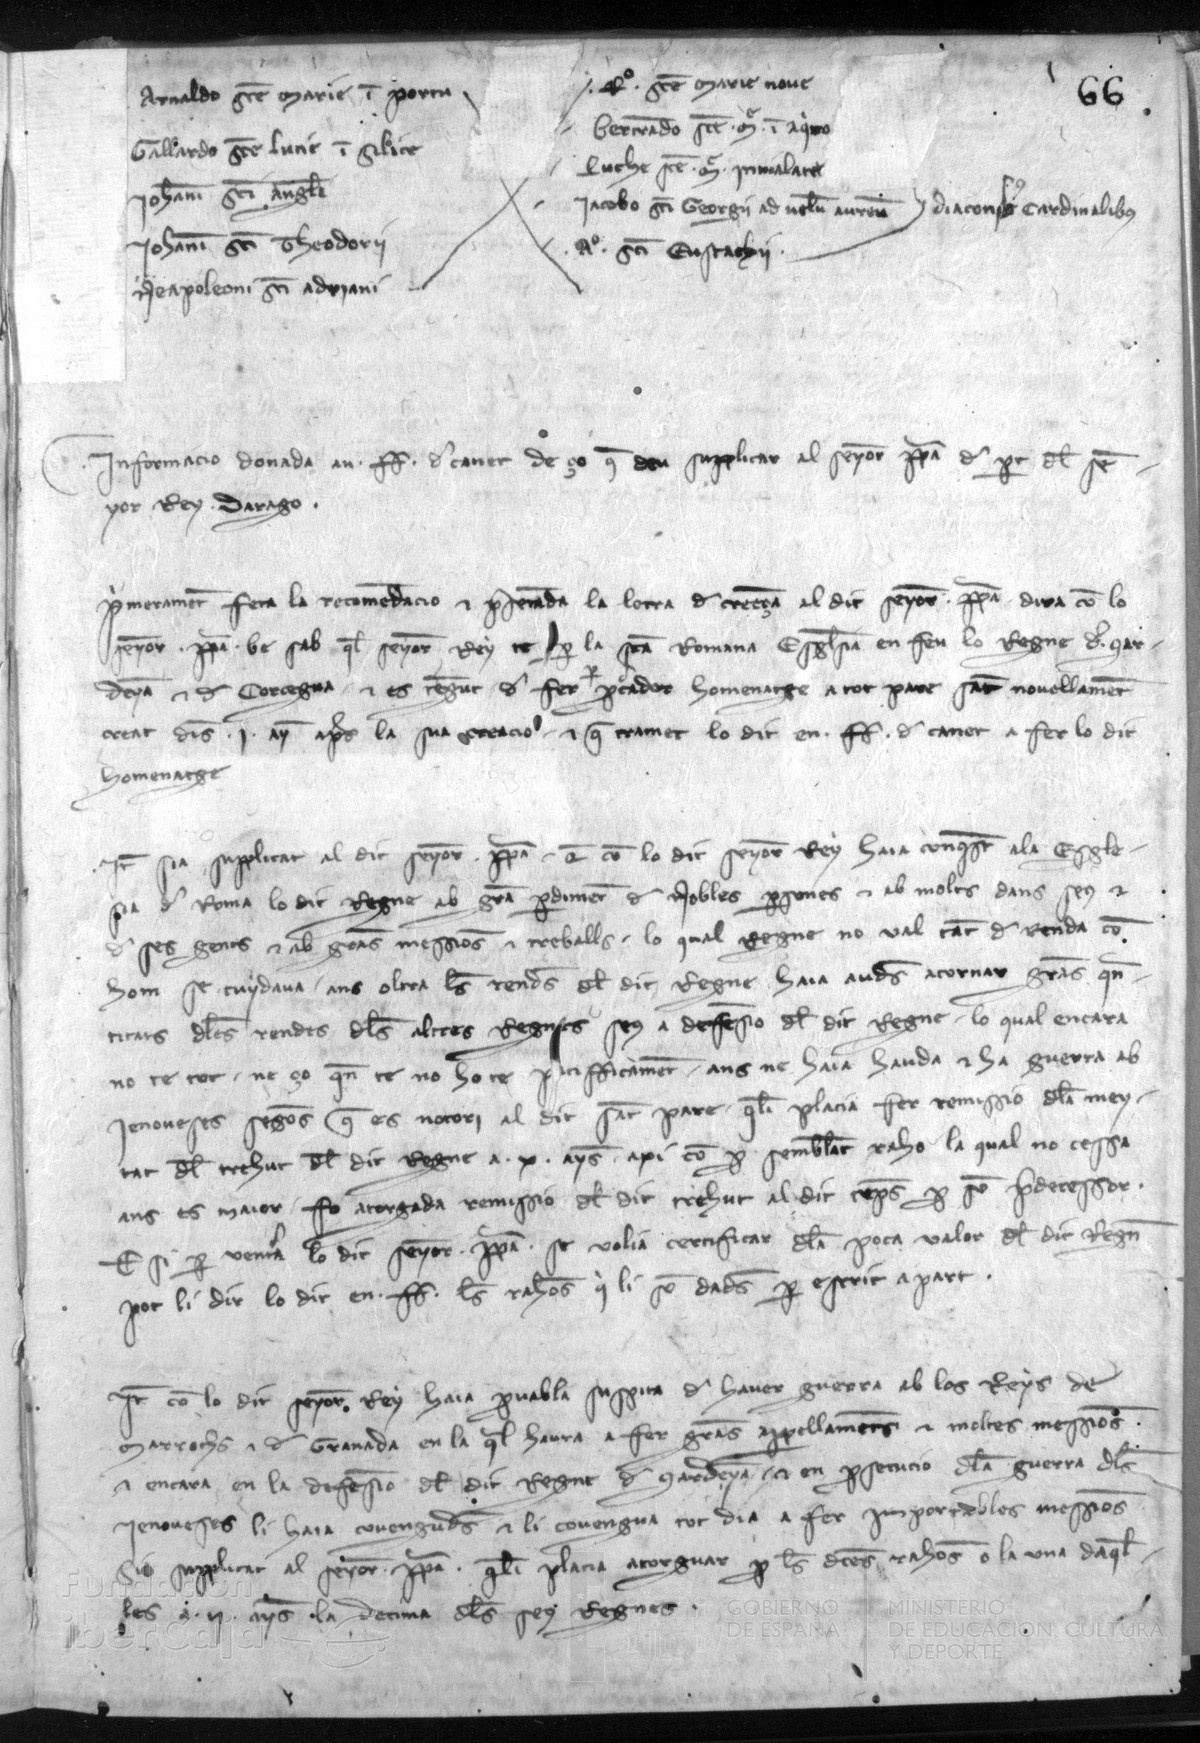 66
Arnaldo sce Marie ī portu
Gallardo sce Lucie ī silice
Johani sci Angeli
Johani sci Theodorii
Neapoleoni sci Adriani
R°. sce Marie nove
Bertrādo sce M. ī Aqiro
Luche sce M. in via lata
Jacobo sci Georgii ad velū aureū
A°. sci Eustachii
diaconis Cardinalibus
Informacio donada an. ff. d caner de ço q deu supplicar al seyor ppa d pt del se-
yor Rey Darago.
Primeramēt feta la recomēdacio e psētada la letra d creēça al dit seyor ppa dira cō lo
seyor ppa be sab ql seyor Rey te p la sca Romana Esglesia en feu lo Regne d Çar-
deya e d Corcegua e es tēgut d fer p pcurador homenatge a tot pare sāt novellamēt
creat dīs .j. ay aps la sua creacio e q tramet lo dit en ff. d canet a fer lo dit
homenatge
It sia supplicat al dit seyor ppa q cō lo dit seyor Rey haia conqst a la Esgle-
sia d Roma lo dit Regne ab gra pdimēt d Nobles psones e ab molts dans seus e
d ses gents e ab gras messios e treballs lo qual Regne no val tāt d renda cō
hom se cuydava ans oltra les rendes del dit Regne haia audes a tornar gras qn-
titats dles rendes dls altres Regnes seus a defēsio dl dit Regne lo qual encara
no te tot ne ço qn te no ho te pacifficamēt ans ne haia hauda e ha guerra ab
Jenoveses segōs q es notori al dit sāt pare qli placia fer remissio dla mey-
tat dl trehut dl dit Regne a .x. ays axi cō p semblāt raho la qual no cessa
ans es maior fo atorgada remissio dl dit trehut al dit tēps p sō pdecessor.
E si p ventura lo dit seyor ppa se volia certificar dla poca valor dl dit Regn
pot li dir lo dit en ff. les rahos q li so dades p escrit a part.
It cō lo dit seyor Rey haia pvabla suspita d haver guerra ab los Reys de
Marrochs e d Granada en la ql haura a fer gras appellamēts e moltes messios
e encara en la defēsio dl dit Regne d Çardeya e en psecucio dla guerra dls
Jenoveses li haia covengudes e li covengua tot dia a fer importables messios
sia supplicat al seyor ppa qli placia atorguar p les dites rahos o la una daql-
les a .ij. ays la decima dls seus Regnes.
Fundación
iberCaja
GOBIERNO
DE ESPAÑA
MINISTERIO
DE EDUCACIÓN, CULTURA
Y DEPORTE